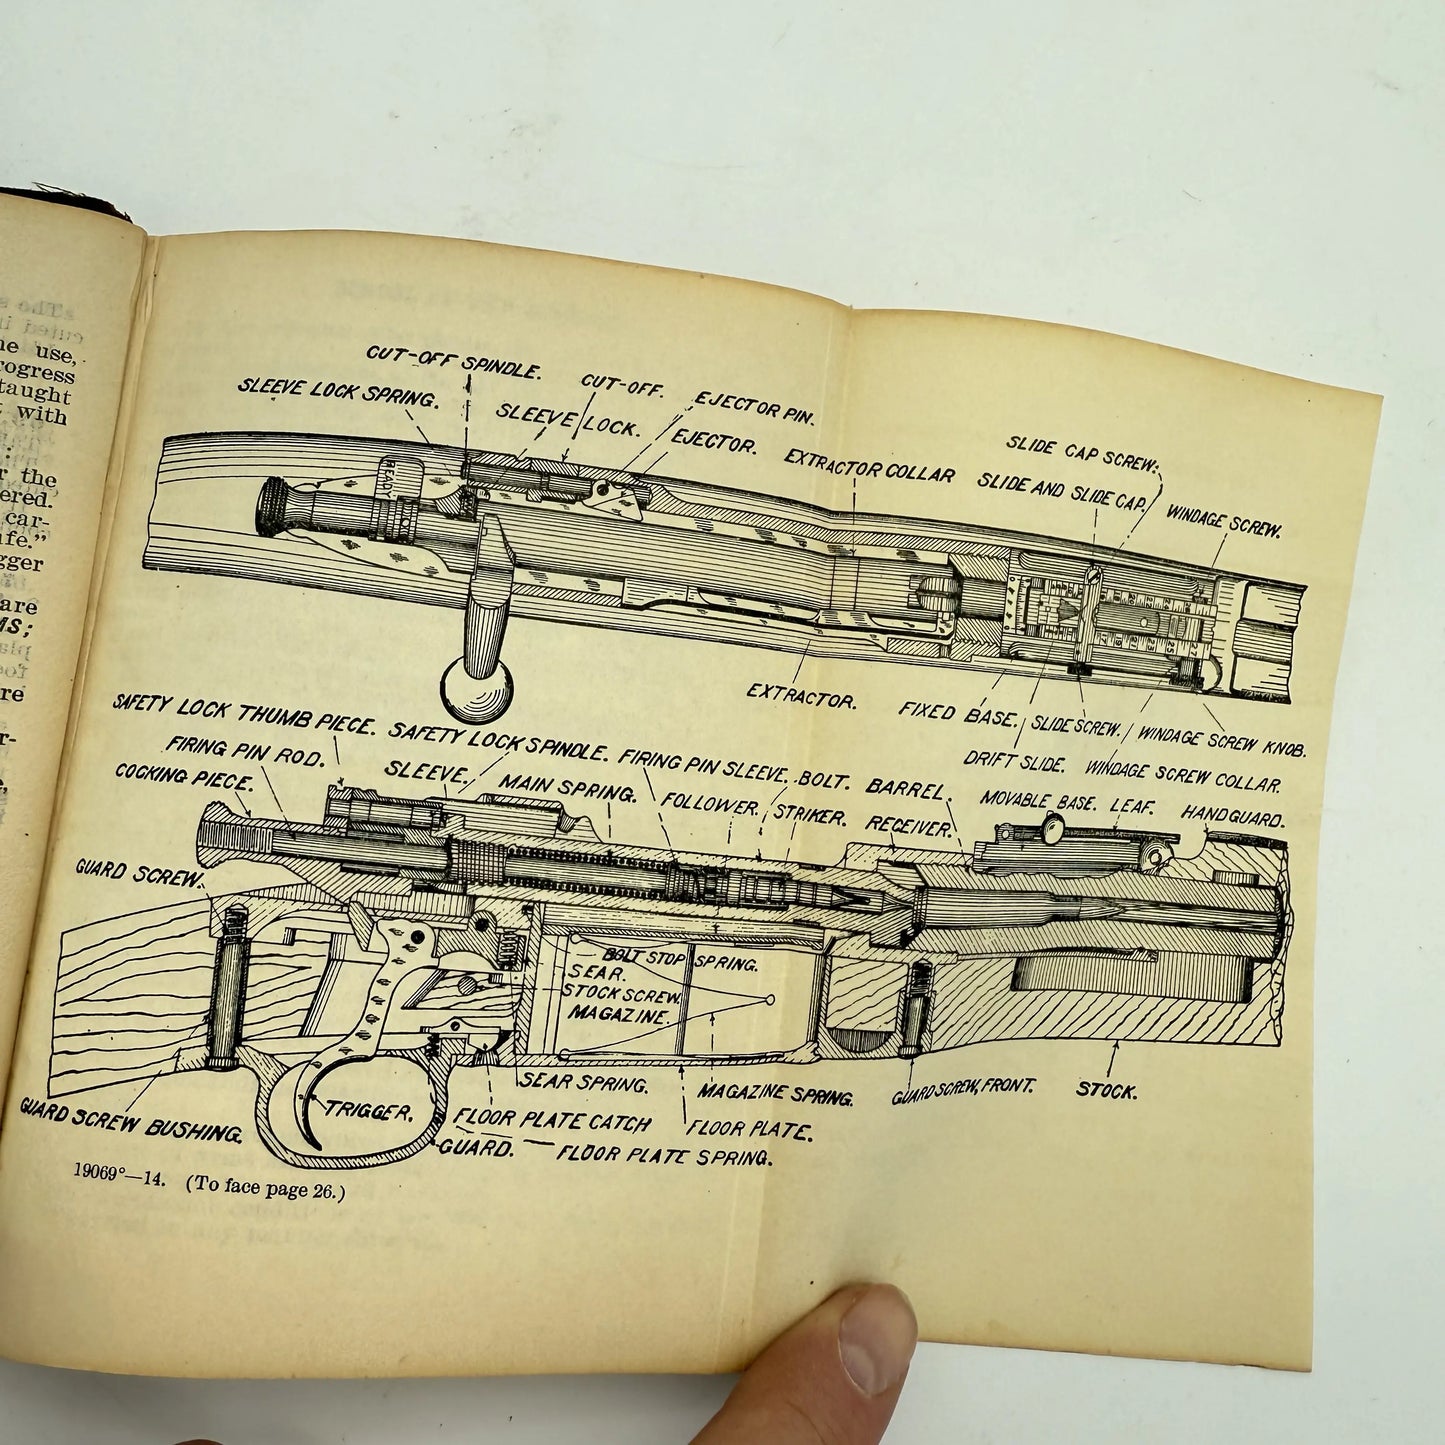 he use,
rogress
taught
with
r the
ered.
car-
afe."
gger
are
MS;
re
r-
CUT-OFF SPINDLE.
CUT-OFF.
SLEEVE LOCK SPRING.
SLEEVE LOCK.
EJECTOR PIN.
EJECTOR.
EXTRACTOR COLLAR
SLIDE CAP SCREW.
SLIDE AND SLIDE CAP.
WINDAGE SCREW.
READY
EXTRACTOR.
FIXED BASE.
SLIDE SCREW.
WINDAGE SCREW KNOB.
DRIFT SLIDE.
WINDAGE SCREW COLLAR.
SAFETY LOCK THUMB PIECE.
SAFETY LOCK SPINDLE.
FIRING PIN SLEEVE.
BOLT.
BARREL.
FIRING PIN ROD.
SLEEVE.
MAIN SPRING.
FOLLOWER.
STRIKER.
RECEIVER.
MOVABLE BASE.
LEAF.
HANDGUARD.
COCKING PIECE.
GUARD SCREW.
BOLT STOP SPRING.
SEAR.
STOCK SCREW.
MAGAZINE.
SEAR SPRING.
MAGAZINE SPRING.
GUARD SCREW, FRONT.
STOCK.
GUARD SCREW BUSHING.
TRIGGER.
FLOOR PLATE CATCH
FLOOR PLATE.
GUARD.
FLOOR PLATE SPRING.
19069°—14. (To face page 26.)